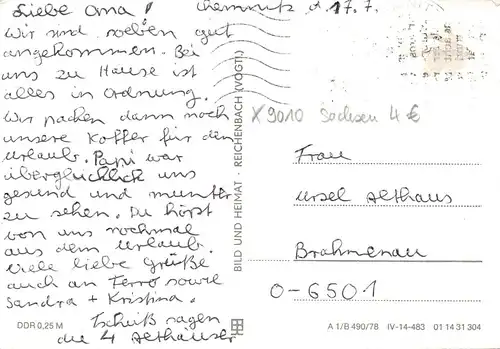 Liebe Oma!
Chemnitz, d. 17.7.
Wir sind soeben gut
angekommen. Bei
uns zu Hause ist
alles in Ordnung.
Wir packen dann noch
unsere Koffer für den
Urlaub. Papi war
überglücklich uns
gesund und munter
zu sehen. Du hörst
von uns nochmal
aus dem Urlaub.
Viele liebe Grüße
auch an Ferro sowie
Sandra + Kristina.
Tschüß sagen
die 4 Althäuser
DDR 0,25 M
BILD UND HEIMAT · REICHENBACH (VOGTL)
X 9010 Sachsen 4 €
Frau
Ursel Althaus
Brahmenau
O-6501
A 1/B 490/78 IV-14-483 01 14 31 304